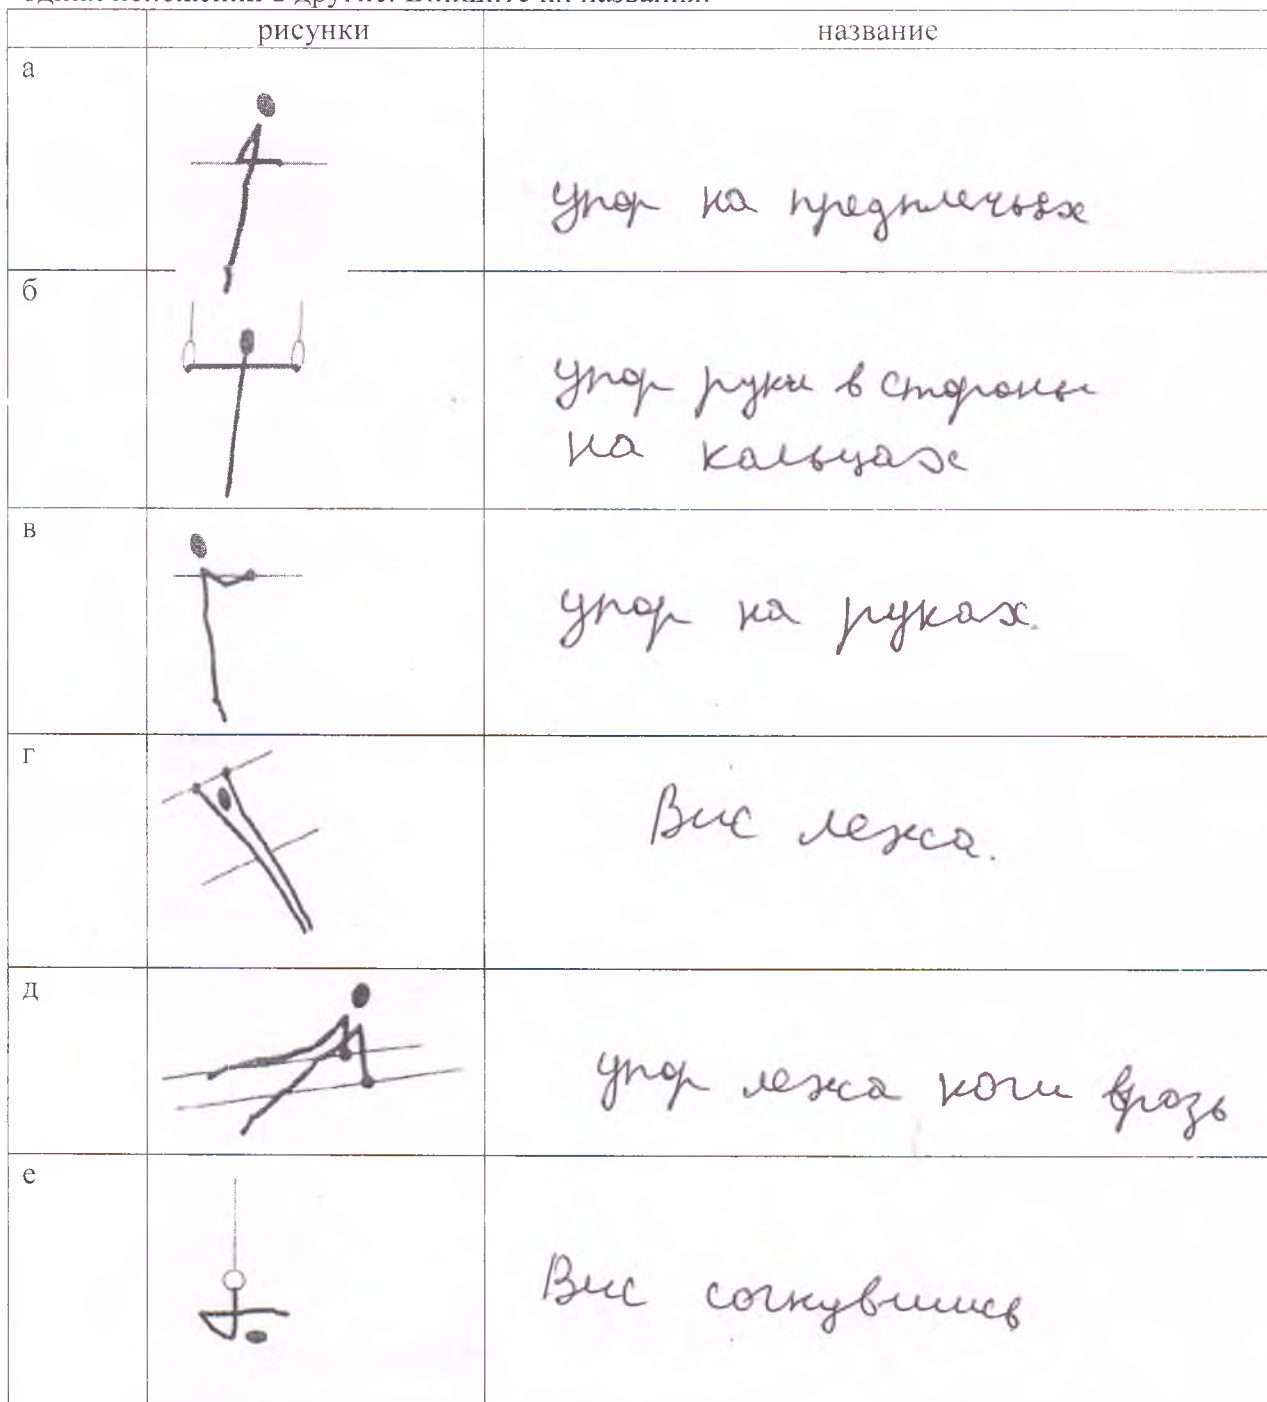 рисунки название
а
упор на предплечьях
б
упор руки в стороны
на кольцах
в
упор на руках.
г
Вис лежа.
д
упор лежа ноги врозь
е
Вис согнувшись